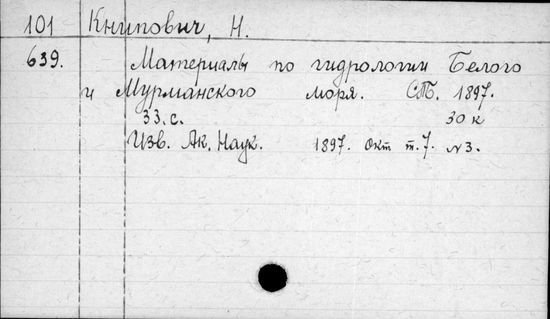 101 Книпович, Н.
639. Материалы по гидрологии Белого
и Мурманского моря. СПб. 1897.
33.с. 30 к
Изв. Ак. Наук. 1897. Окт т.7. №3.